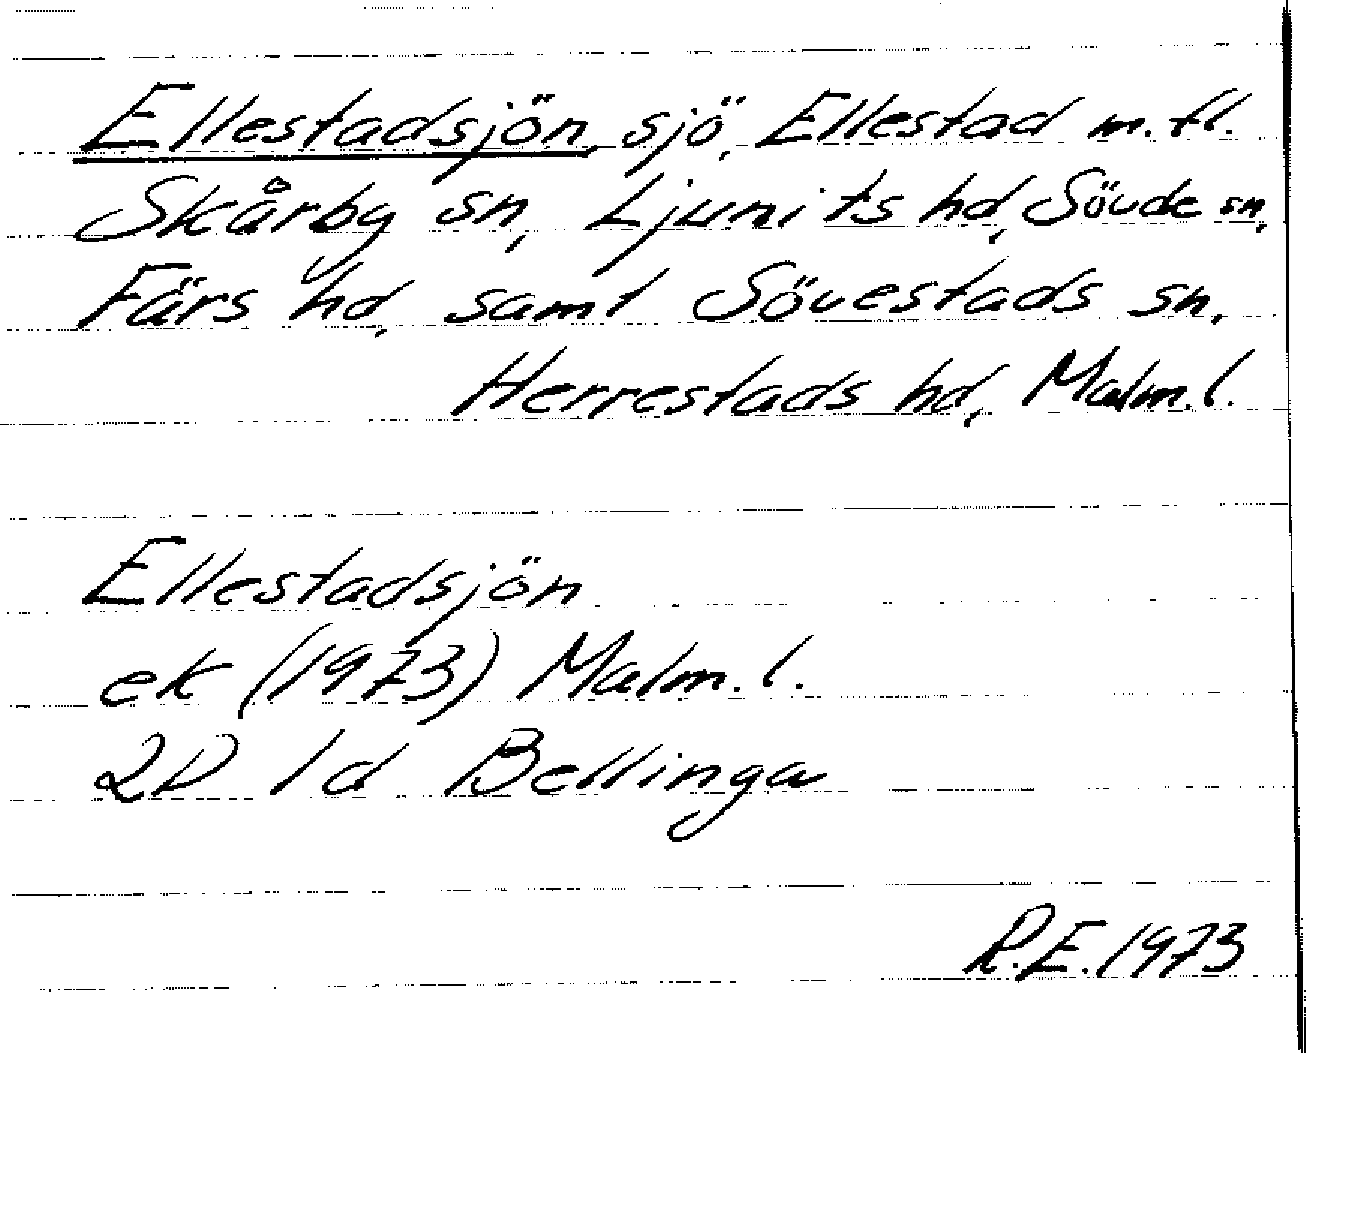 Ellestadsjön, sjö, Ellestad m.fl.
Skårby sn, Ljunits hd, Sövde sn,
Färs hd, samt Sövestads sn,
Herrestads hd, Malm.l.
Ellestadsjön
ek (1973) Malm.l.
2D 1d Bellinga
R.E.1973